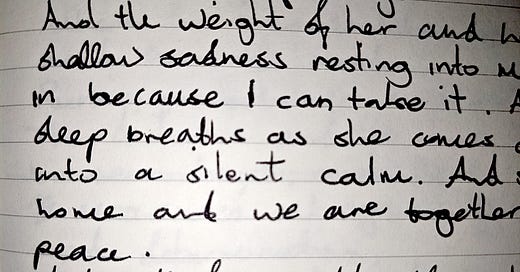 And the weight of her and h
shallow sadness resting into m
in because I can take it. A
deep breaths as she comes
into a silent calm. And
home and we are together
peace.